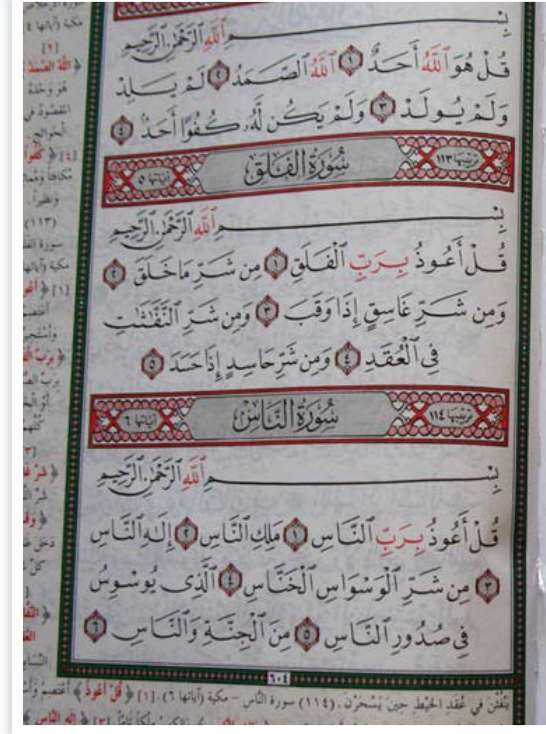 بِسْمِ ٱللَّهِ ٱلرَّحْمَٰنِ ٱلرَّحِيمِ
قُلْ هُوَ ٱللَّهُ أَحَدٌ ١ ٱللَّهُ ٱلصَّمَدُ ٢ لَمْ يَلِدْ
وَلَمْ يُولَدْ ٣ وَلَمْ يَكُن لَّهُۥ كُفُوًا أَحَدٌۢ ٤
ترتيبها ١١٣ سُورَةُ الفَلَق آياتها ٥
بِسْمِ ٱللَّهِ ٱلرَّحْمَٰنِ ٱلرَّحِيمِ
قُلْ أَعُوذُ بِرَبِّ ٱلْفَلَقِ ١ مِن شَرِّ مَا خَلَقَ ٢
وَمِن شَرِّ غَاسِقٍ إِذَا وَقَبَ ٣ وَمِن شَرِّ ٱلنَّفَّٰثَٰتِ
فِى ٱلْعُقَدِ ٤ وَمِن شَرِّ حَاسِدٍ إِذَا حَسَدَ ٥
ترتيبها ١١٤ سُورَةُ النَّاسِ آياتها ٦
بِسْمِ ٱللَّهِ ٱلرَّحْمَٰنِ ٱلرَّحِيمِ
قُلْ أَعُوذُ بِرَبِّ ٱلنَّاسِ ١ مَلِكِ ٱلنَّاسِ ٢ إِلَٰهِ ٱلنَّاسِ
٣ مِن شَرِّ ٱلْوَسْوَاسِ ٱلْخَنَّاسِ ٤ ٱلَّذِى يُوَسْوِسُ
فِى صُدُورِ ٱلنَّاسِ ٥ مِنَ ٱلْجِنَّةِ وَٱلنَّاسِ ٦
٦٠٤
يَنْفُثْنَ في عُقَدِ الخَيْطِ حِينَ يَسْحَرْنَ. (١١٤) سورة النَّاس – مكية (آياتها ٦). [١] ﴿قُلْ أَعُوذُ﴾ أعتصم